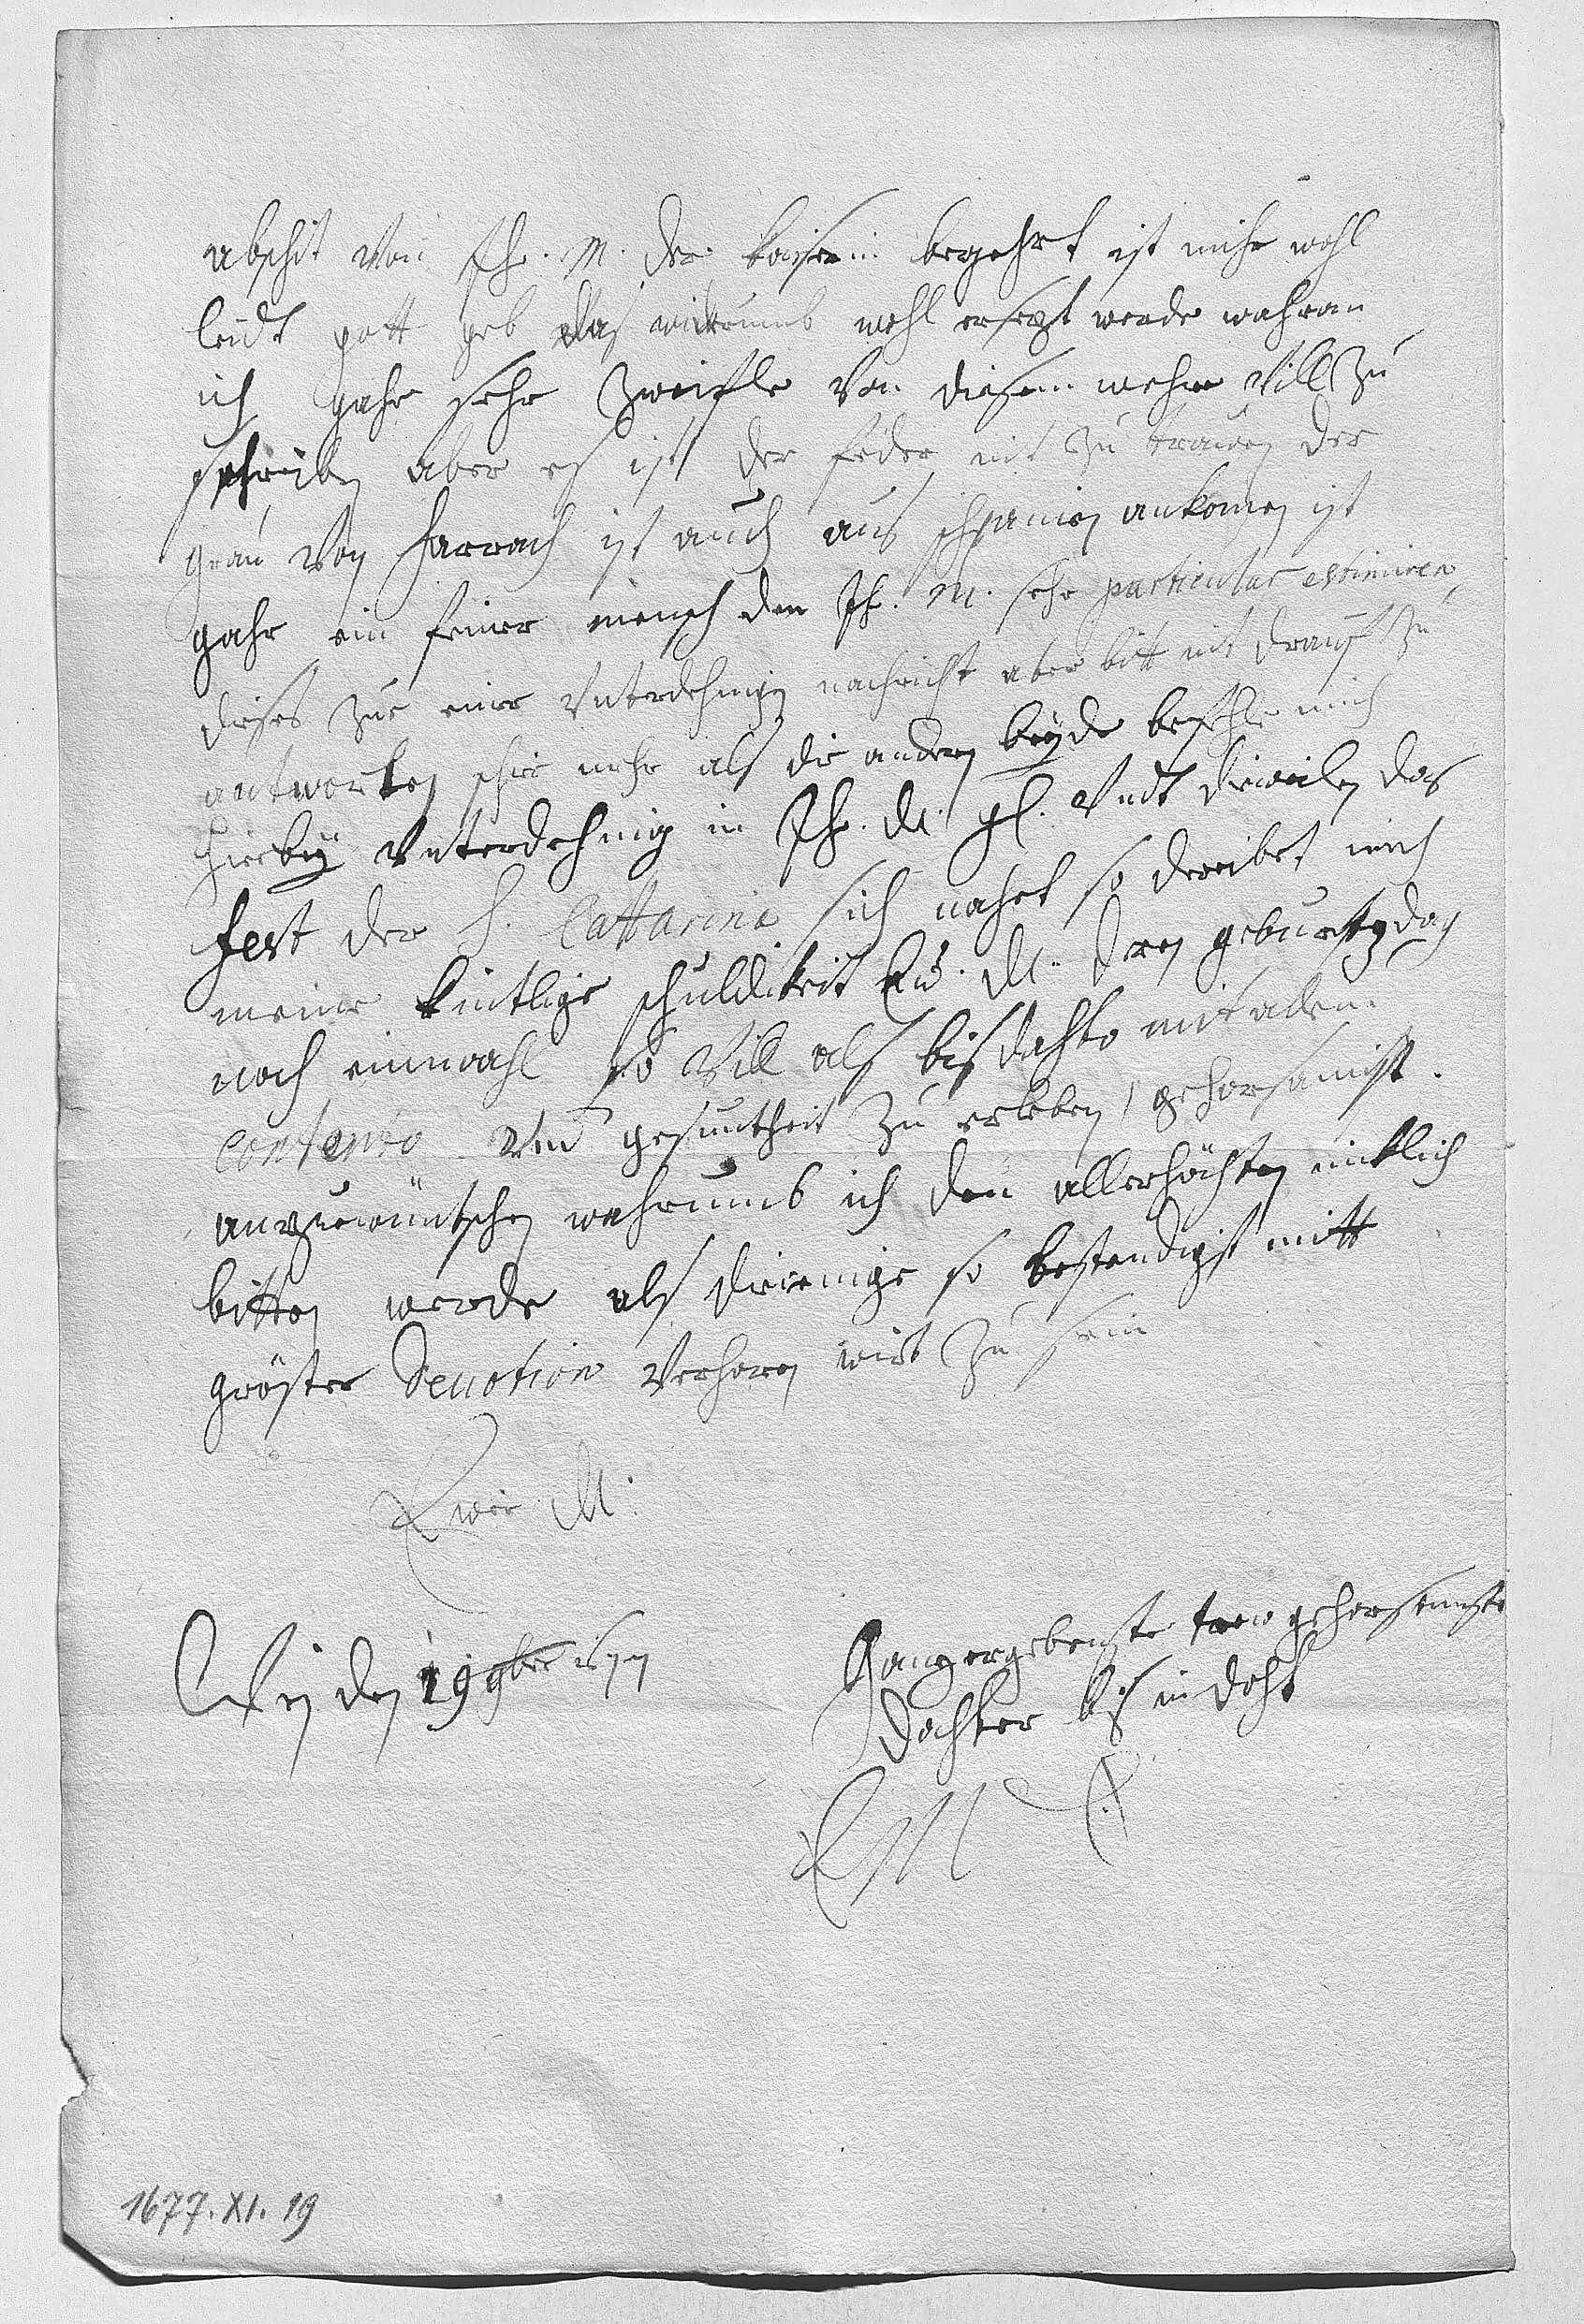 abschit von Ih. M. der kaiserin begehrt ist mihr wohl
leidt gott geb das widerumb wohl ersezt werde wahran
ich gahr sehr zweifle von diesem wehre vill zu
schreiben aber es ist der feder nit zu trauen der
graff von Harrach ist auch aus schpanien ankomen ist
gahr ein feiner mensch den Ih. M. sehr particular estimiren
dieses zur einer unterdehnigen nachricht aber bitt nit drauf zu
antworten schir mehr als die andern beyde befehle mich
hierbey unterdehnig in Ih. M. gl. undt dieweilen das
fest der h. Cattarina sich nahet so dreibet mich
meine kintlige schuldikeit Eu. M. deren geburtzdag
noch einmahl so vill als bis dahto mit allem
contento und gesuntheit zu erleben gehorsamist
anzuwüntschen wahrumb ich den allerhöchsten inniklich
bitten werde als dieienige so bestendigst mitt
gröster Devotion verharen wirt zu sein
Ewer M.
Wien den 19 9ber 1677
Ganz ergebenste trew gehorsamste
dochter bis in doht
E M
1677. XI. 19